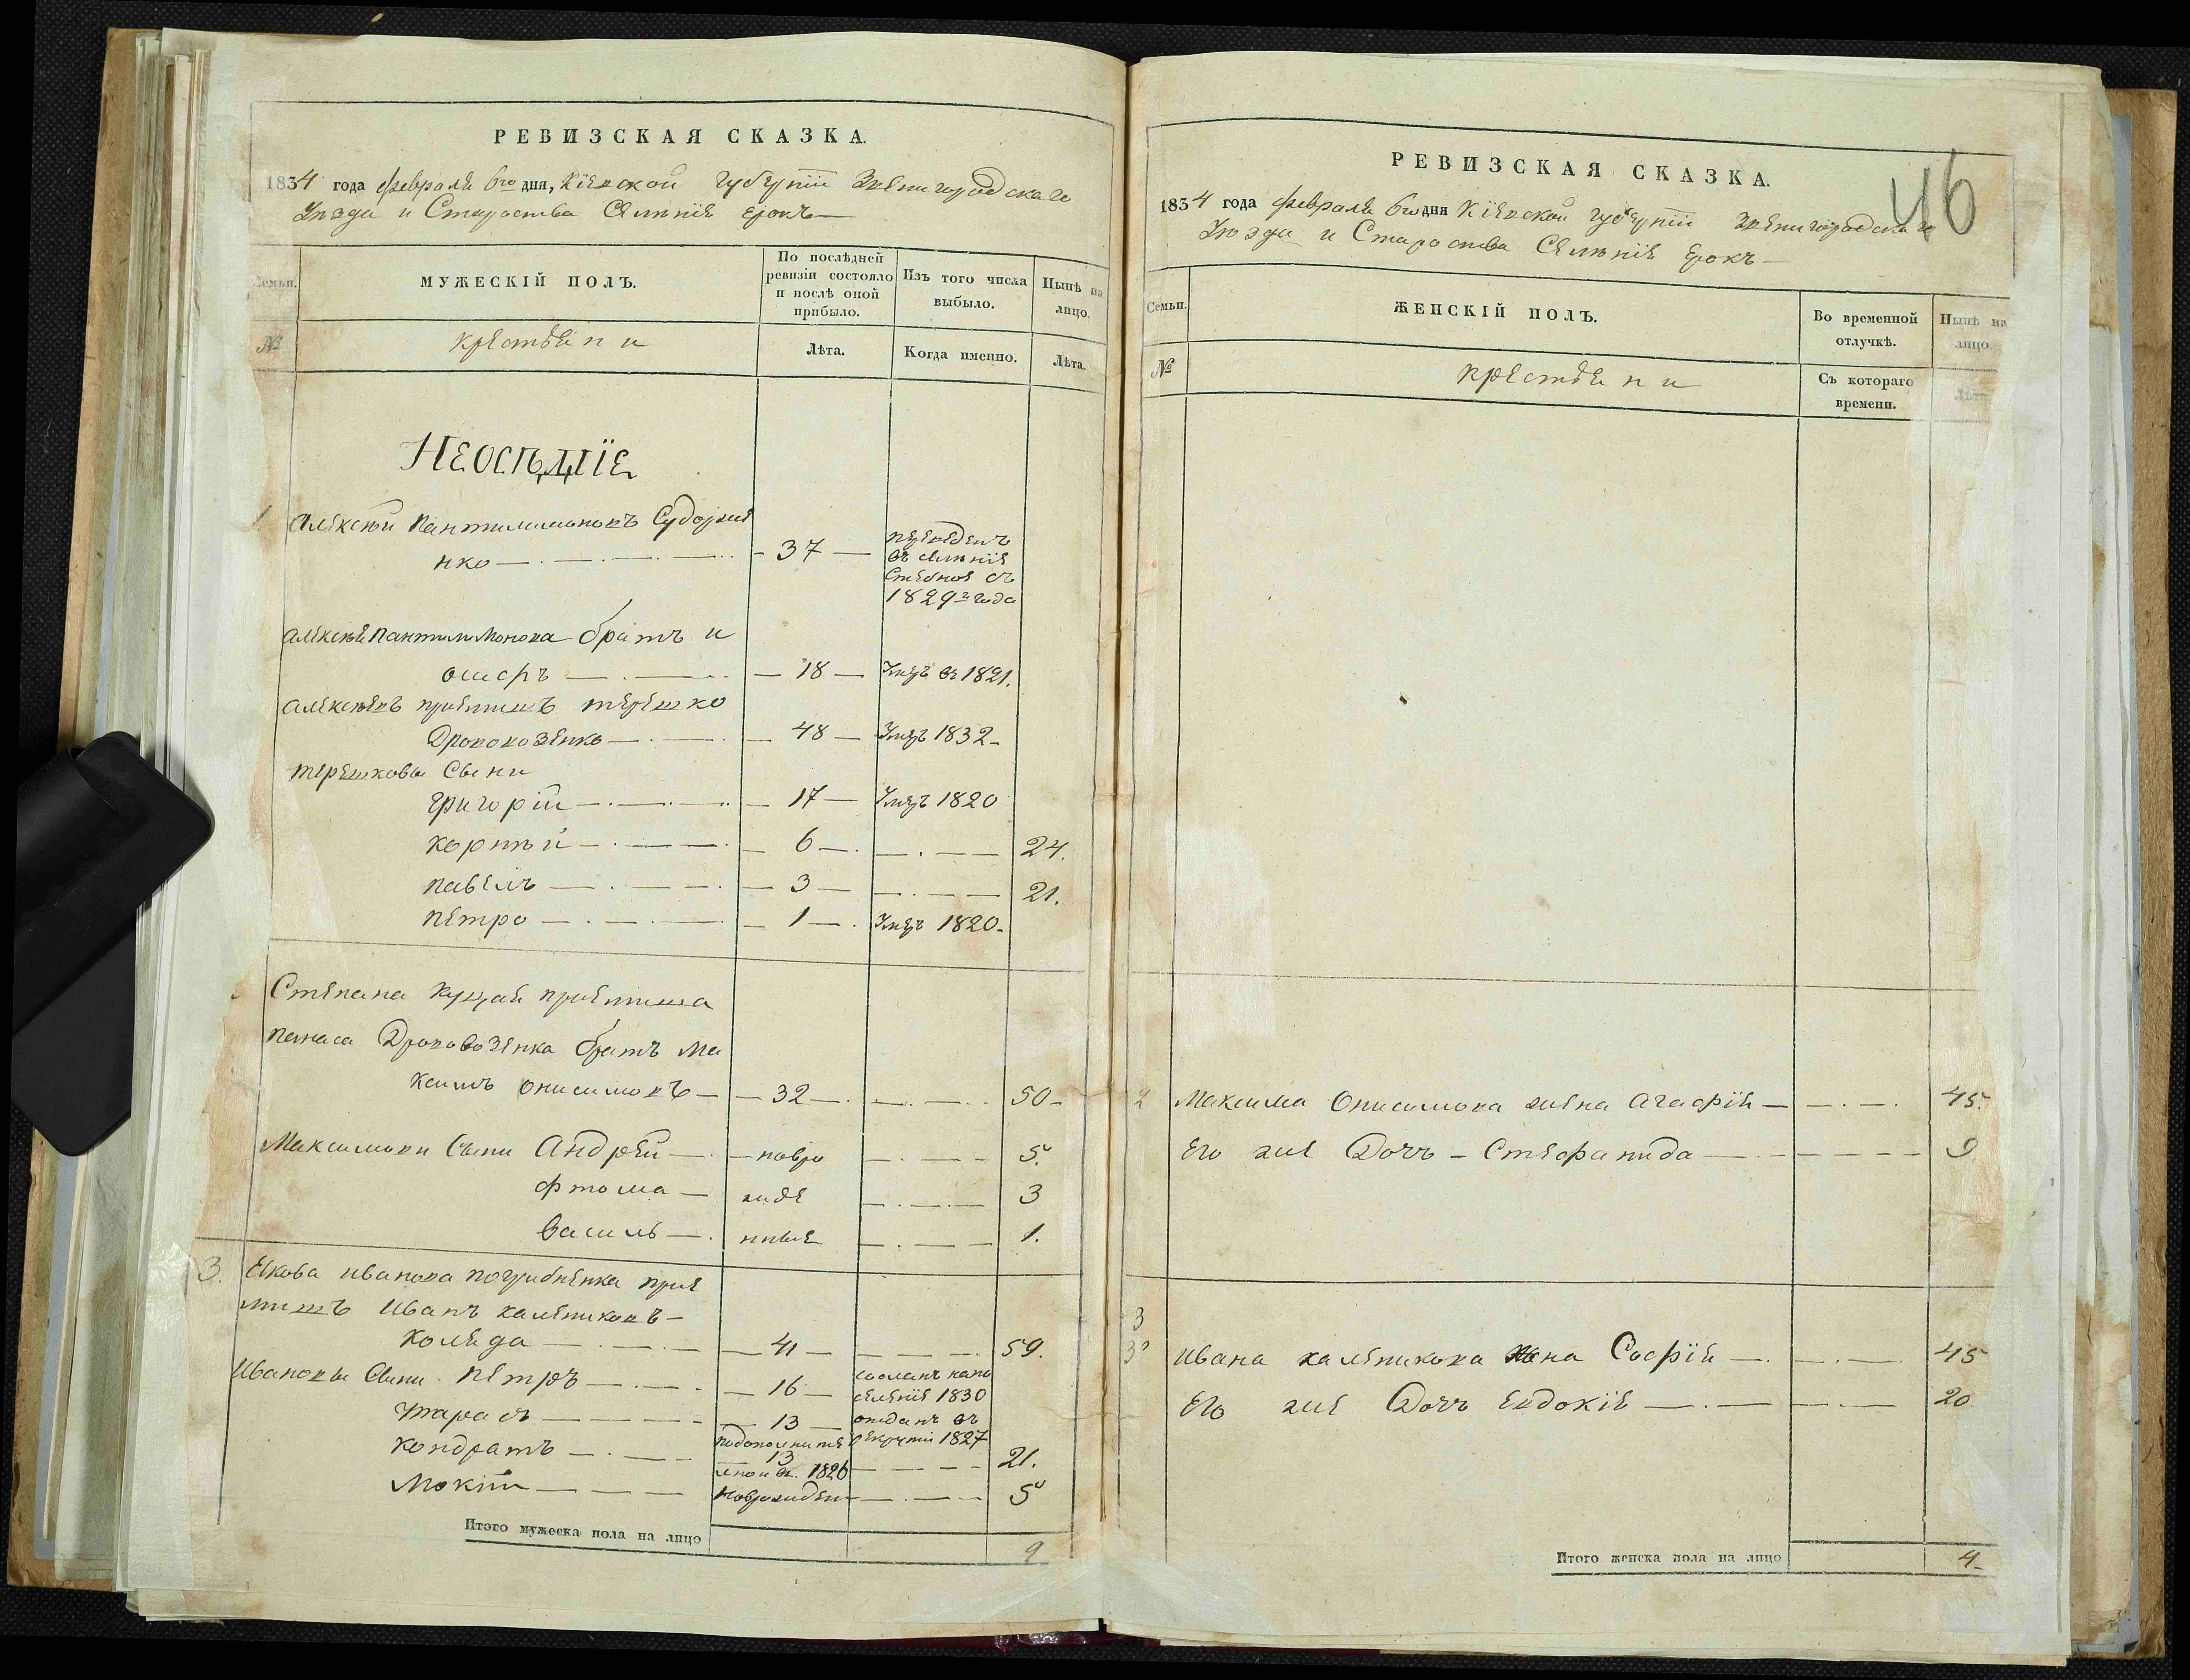 РЕВИЗСКАЯ СКАЗКА.
1834 года февраля 6го дня, Кіевской губерніи Звенигородскаго
Уезда и Староства Селенія Ерокъ
Семьи. МУЖЕСКІЙ ПОЛЪ. По послѣдней ревизіи состояло и послѣ оной прибыло. Изъ того числа выбыло. Нынѣ на лицо.
№ крестьяни Лѣта. Когда именно. Лѣта.
Неоседліе
1 Алексѣй Пантилимоновъ Сидорже
нко 37 переведенъ
въ селеніе
Стебное съ
1829го года
Алексея Пантилимонова братъ и
осифъ 18 Умеръ въ 1821.
Алексѣевъ приемишъ терешко
Дрововозенко 48 Умеръ 1832
терешковы Сыни
григорій 17 Умеръ 1820
корней 6 24.
павелъ 3 21.
петро 1 Умеръ 1820.
Степана Куцая приемиша
панаса Дрововозенка братъ Ма
ксимъ онисимовъ 32 50
Максимови Сыни Андрей новро 5.
фтома жде 3
василь нные 1.
3. Якова иванова погрибненка прие
мишъ Иванъ калениковъ
коляда 41 59.
Ивановы Сыни Петръ 16 сосланъ напо
селеніе 1830
тарасъ 13 отданъ въ
рекруты 1827
кондратъ подополните 13 льной въ 1826 21.
Мокій новорожден 5
Итого мужеска пола на лицо 9
РЕВИЗСКАЯ СКАЗКА.
46
1834 года февраля 6го дня Кіевской губерніи Звенигородскаго
Уезда и Староства Селенія Ерокъ
Семьи. ЖЕНСКІЙ ПОЛЪ. Во временной отлучкѣ. Нынѣ на лицо.
№ крестьяни Съ котораго времени. Лѣта
2 Максима Онисимова жена Агафія 45.
Его же Дочь Стефанида 9
3
3 Ивана каленикова жена Софія 45
Его же Дочь Евдокія 20
Итого женска пола на лицо 4